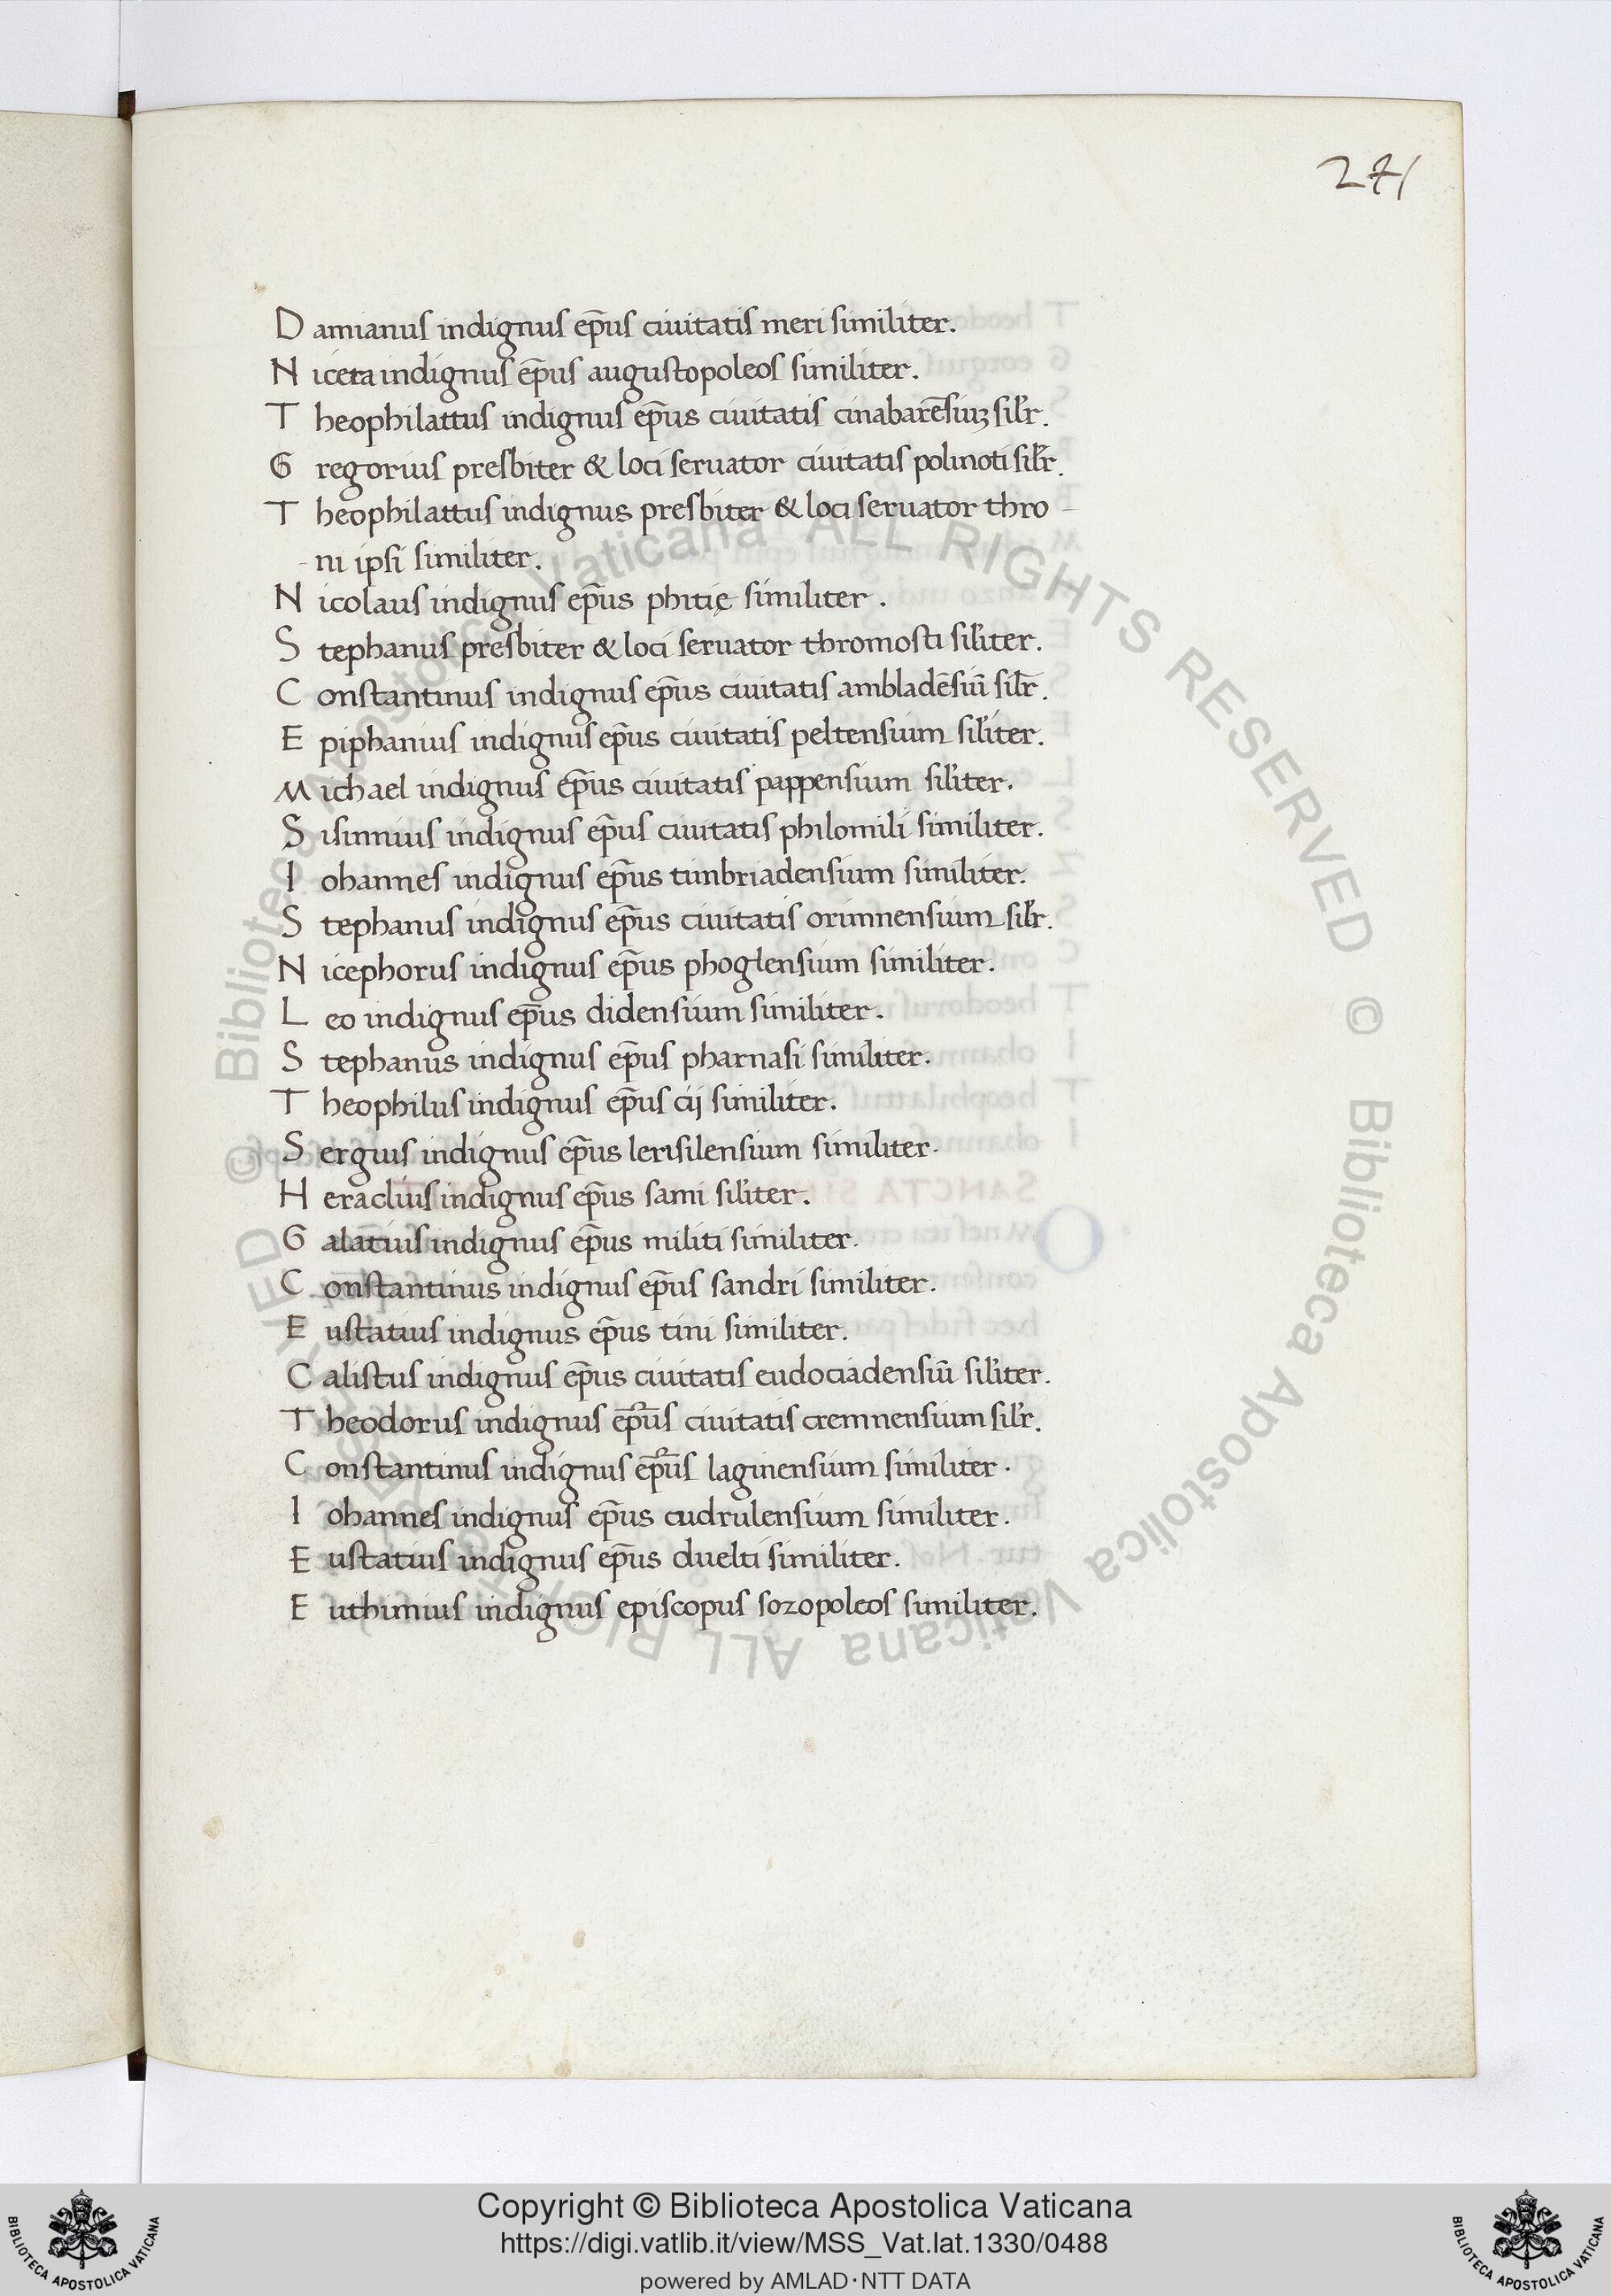 271
Damianus indignus ep̄us ciuitatis meri similiter.
Niceta indignus ep̄us augustopoleos similiter.
Theophilattus indignus ep̄us ciuitatis cinabarēsiuꝫ sil'r.
Gregorius presbiter & loci seruator ciuitatis polinoti sil'r.
Theophilattus indignus presbiter & loci seruator thro-
-ni ipsi similiter.
Nicolaus indignus ep̄us phitię similiter.
Stephanus presbiter & loci seruator thromosti sil'iter.
Constantinus indignus ep̄us ciuitatis ambladēsiū sil'r.
Epiphanius indignus ep̄us ciuitatis peltensium sil'iter.
Michael indignus ep̄us ciuitatis pappensium sil'iter.
Sisinnius indignus ep̄us ciuitatis philomili similiter.
Iohannes indignus ep̄us timbriadensium similiter.
Stephanus indignus ep̄us ciuitatis orimnensium sil'r.
Nicephorus indignus ep̄us phoglensium similiter.
Leo indignus ep̄us didensium similiter.
Stephanus indignus ep̄us pharnasi similiter.
Theophilus indignus ep̄us cij similiter.
Sergius indignus ep̄us lerisilensium similiter.
Heraclius indignus ep̄us sami sil'iter.
Galatius indignus ep̄us militi similiter.
Constantinus indignus ep̄us sandri similiter.
Eustatius indignus ep̄us tini similiter.
Calistus indignus ep̄us ciuitatis eudociadensiū sil'iter.
Theodorus indignus ep̄us ciuitatis cremnensium sil'r.
Constantinus indignus ep̄us laginensium similiter.
Iohannes indignus ep̄us cudrulensium similiter.
Eustatius indignus ep̄us duelti similiter.
Euthimius indignus episcopus sozopoleos similiter.
© Biblioteca Apostolica Vaticana ALL RIGHTS RESERVED © Biblioteca Apostolica Vaticana ALL RIGHTS RESERVED
Copyright © Biblioteca Apostolica Vaticana
https://digi.vatlib.it/view/MSS_Vat.lat.1330/0488
powered by AMLAD·NTT DATA
BIBLIOTECA APOSTOLICA VATICANA
BIBLIOTECA APOSTOLICA VATICANA